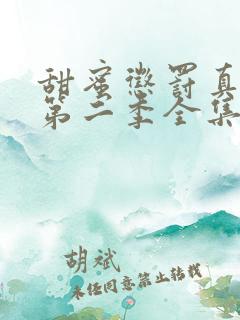 甜蜜惩罚真
第二季全集
胡斌
未经同意禁止转载